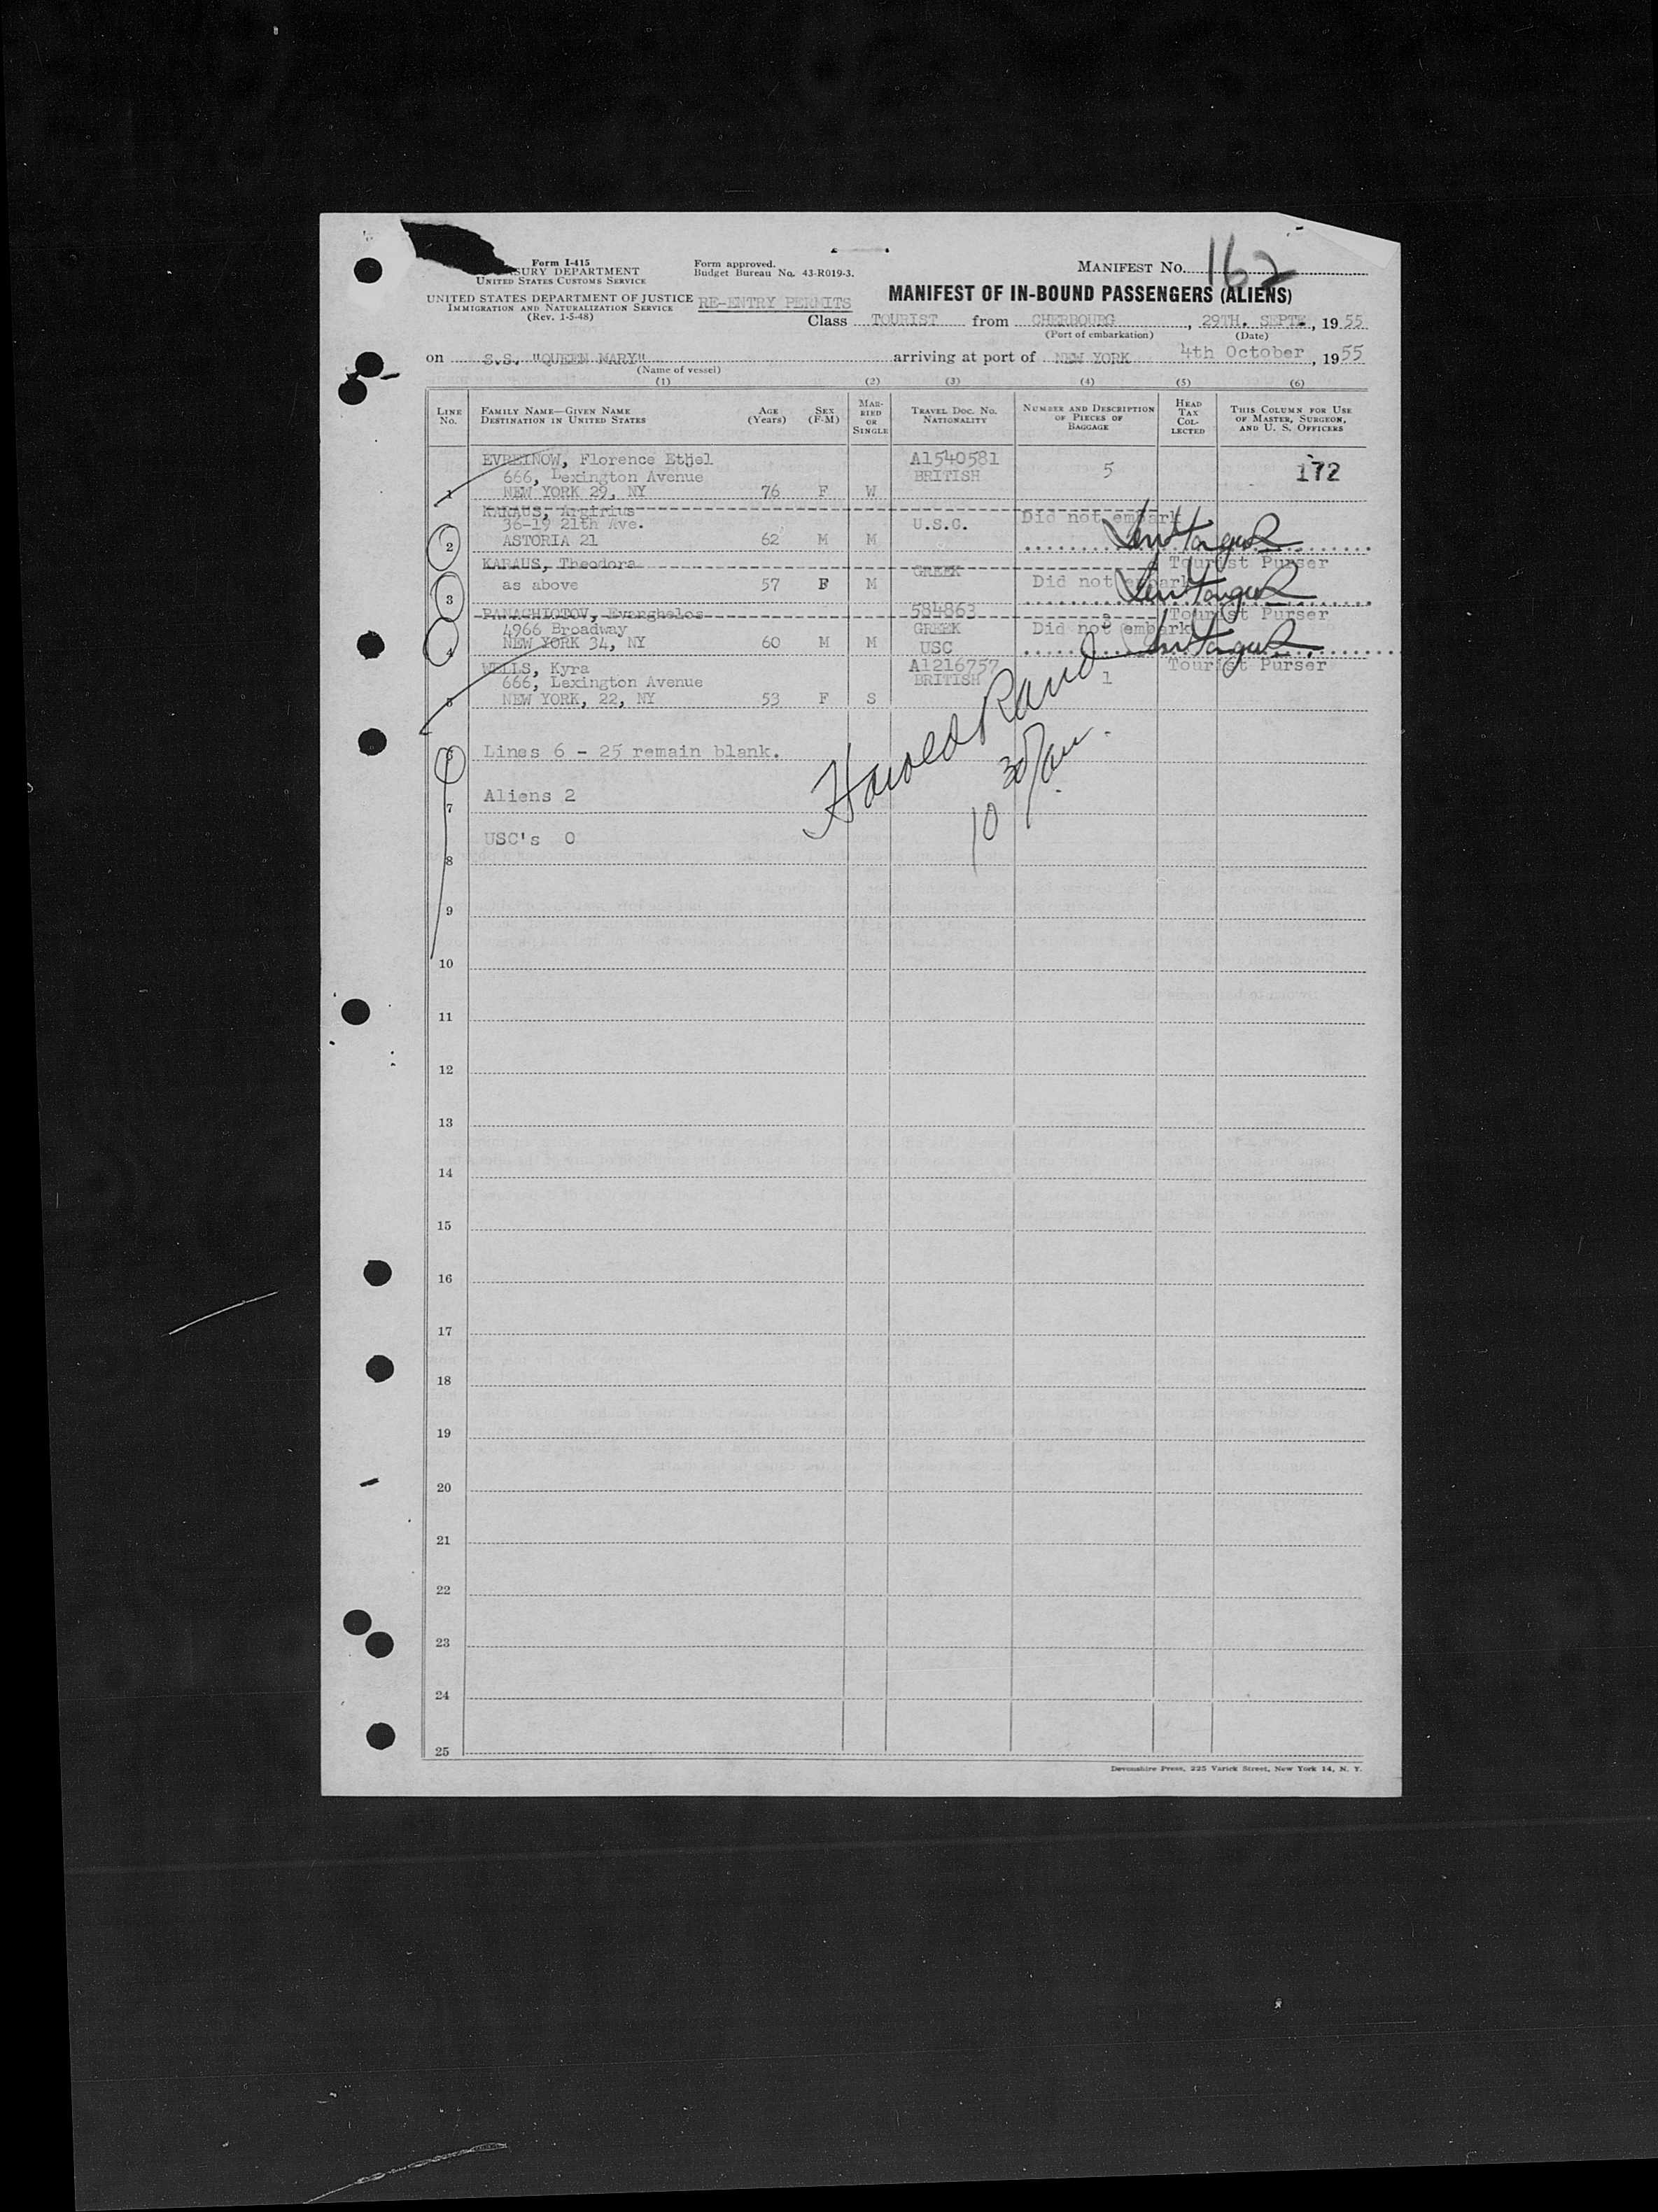 Form I-415
SURY DEPARTMENT
UNITED STATES CUSTOMS SERVICE
UNITED STATES DEPARTMENT OF JUSTICE
IMMIGRATION AND NATURALIZATION SERVICE
(Rev. 1-5-48)
Form approved.
Budget Bureau No. 43-R019-3.
RE-ENTRY PERMITS
MANIFEST NO. 162
MANIFEST OF IN-BOUND PASSENGERS (ALIENS)
Class TOURIST from CHERBOURG, 29TH. SEPT., 1955
(Port of embarkation) (Date)
on S.S. "QUEEN MARY" arriving at port of NEW YORK 4th October, 1955
(Name of vessel)
(1) (2) (3) (4) (5) (6)
LINE NO. FAMILY NAME—GIVEN NAME DESTINATION IN UNITED STATES AGE (Years) SEX (F-M) MARRIED OR SINGLE TRAVEL DOC. NO. NATIONALITY NUMBER AND DESCRIPTION OF PIECES OF BAGGAGE HEAD TAX COLLECTED THIS COLUMN FOR USE OF MASTER, SURGEON, AND U. S. OFFICERS
EVREINOW, Florence Ethel A1540581
666, Lexington Avenue BRITISH 5 172
1 NEW YORK 29, NY 76 F W
KARAUS, Argirius
36-19 21th Ave. U.S.C. Did not embark
2 ASTORIA 21 62 M M
KARAUS, Theodora GREEK Tourist Purser
3 as above 57 F M Did not embark
PANAGHIOTOV, Evanghelos 584863 Tourist Purser
4966 Broadway GREEK Did not embark
4 NEW YORK 34, NY 60 M M USC
WELLS, Kyra A1216757 Tourist Purser
666, Lexington Avenue BRITISH 1
5 NEW YORK, 22, NY 53 F S
Harold Rand
10 30/am.
6 Lines 6 - 25 remain blank.
7 Aliens 2
8 USC's 0
9
10
11
12
13
14
15
16
17
18
19
20
21
22
23
24
25
Devonshire Press, 225 Varick Street, New York 14, N. Y.